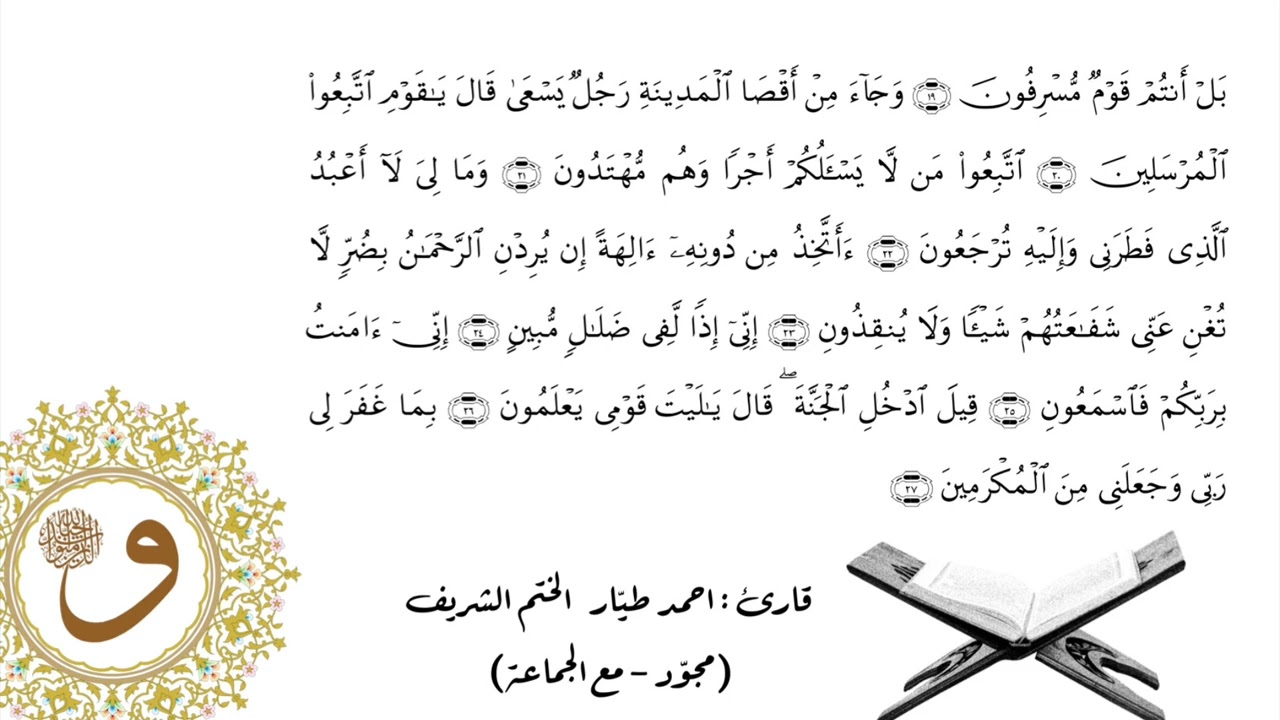 بَلۡ أَنتُمۡ قَوۡمٌ مُّسۡرِفُونَ ١٩ وَجَآءَ مِنۡ أَقۡصَا ٱلۡمَدِينَةِ رَجُلٌ يَسۡعَىٰ قَالَ يَـٰقَوۡمِ ٱتَّبِعُوا۟
ٱلۡمُرۡسَلِينَ ٢٠ ٱتَّبِعُوا۟ مَن لَّا يَسۡـَٔلُكُمۡ أَجۡرًا وَهُم مُّهۡتَدُونَ ٢١ وَمَا لِىَ لَآ أَعۡبُدُ
ٱلَّذِى فَطَرَنِى وَإِلَيۡهِ تُرۡجَعُونَ ٢٢ ءَأَتَّخِذُ مِن دُونِهِۦٓ ءَالِهَةً إِن يُرِدۡنِ ٱلرَّحۡمَـٰنُ بِضُرٍّ لَّا
تُغۡنِ عَنِّى شَفَـٰعَتُهُمۡ شَيۡـًٔا وَلَا يُنقِذُونِ ٢٣ إِنِّىٓ إِذًا لَّفِى ضَلَـٰلٍ مُّبِينٍ ٢٤ إِنِّىٓ ءَامَنتُ
بِرَبِّكُمۡ فَٱسۡمَعُونِ ٢٥ قِيلَ ٱدۡخُلِ ٱلۡجَنَّةَۖ قَالَ يَـٰلَيۡتَ قَوۡمِى يَعۡلَمُونَ ٢٦ بِمَا غَفَرَ لِى
رَبِّى وَجَعَلَنِى مِنَ ٱلۡمُكۡرَمِينَ ٢٧
و
قارئ : احمد طيّار الختم الشريف
(مجوّد - مع الجماعة)